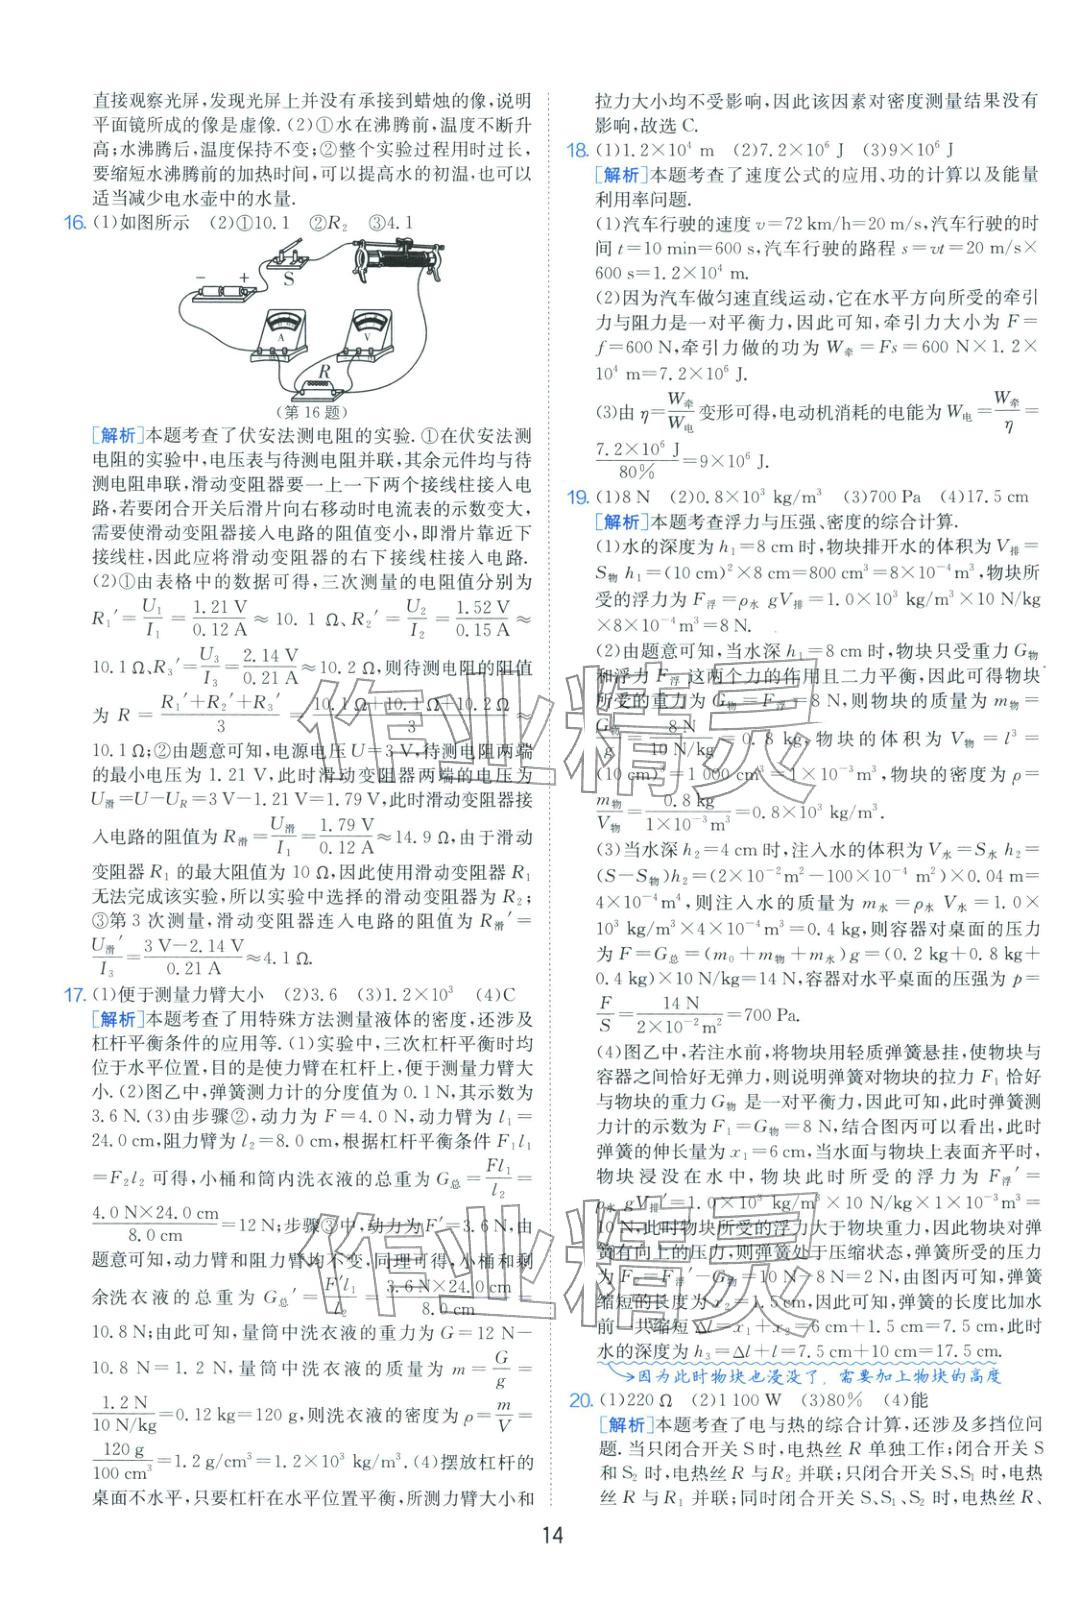 直接观察光屏,发现光屏上并没有承接到蜡烛的像,说明
平面镜所成的像是虚像.(2)①水在沸腾前,温度不断升
高;水沸腾后,温度保持不变;②整个实验过程用时过长,
要缩短水沸腾前的加热时间,可以提高水的初温,也可以
适当减少电水壶中的水量.
16. (1)如图所示 (2)①10.1 ②R₂ ③4.1
− + S
A V
R
(第16题)
[解析]本题考查了伏安法测电阻的实验.①在伏安法测
电阻的实验中,电压表与待测电阻并联,其余元件均与待
测电阻串联,滑动变阻器要一上一下两个接线柱接入电
路,若要闭合开关后滑片向右移动时电流表的示数变大,
需要使滑动变阻器接入电路的阻值变小,即滑片靠近下
接线柱,因此应将滑动变阻器的右下接线柱接入电路.
(2)①由表格中的数据可得,三次测量的电阻值分别为
R₁′=U₁/I₁=1.21 V/0.12 A≈10.1 Ω、R₂′=U₂/I₂=1.52 V/0.15 A≈
10.1 Ω、R₃′=U₃/I₃=2.14 V/0.21 A≈10.2 Ω,则待测电阻的阻值
为 R=(R₁′+R₂′+R₃′)/3=(10.1 Ω+10.1 Ω+10.2 Ω)/3≈
10.1 Ω;②由题意可知,电源电压U=3 V,待测电阻两端
的最小电压为1.21 V,此时滑动变阻器两端的电压为
U滑=U−U_R=3 V−1.21 V=1.79 V,此时滑动变阻器接
入电路的阻值为R滑=U滑/I₁=1.79 V/0.12 A≈14.9 Ω,由于滑动
变阻器R₁的最大阻值为10 Ω,因此使用滑动变阻器R₁
无法完成该实验,所以实验中选择的滑动变阻器为R₂;
③第3次测量,滑动变阻器连入电路的阻值为R滑′=
U滑′/I₃=(3 V−2.14 V)/0.21 A≈4.1 Ω.
17. (1)便于测量力臂大小 (2)3.6 (3)1.2×10³ (4)C
[解析]本题考查了用特殊方法测量液体的密度,还涉及
杠杆平衡条件的应用等.(1)实验中,三次杠杆平衡时均
位于水平位置,目的是使力臂在杠杆上,便于测量力臂大
小.(2)图乙中,弹簧测力计的分度值为0.1 N,其示数为
3.6 N.(3)由步骤②,动力为F=4.0 N,动力臂为l₁=
24.0 cm,阻力臂为l₂=8.0 cm,根据杠杆平衡条件F₁l₁
=F₂l₂可得,小桶和筒内洗衣液的总重为G总=Fl₁/l₂=
4.0 N×24.0 cm/8.0 cm=12 N;步骤③中,动力为F′=3.6 N,由
题意可知,动力臂和阻力臂均不变,同理可得,小桶和剩
余洗衣液的总重为G总′=F′l₁/l₂=3.6 N×24.0 cm/8.0 cm=
10.8 N;由此可知,量筒中洗衣液的重力为G=12 N−
10.8 N=1.2 N,量筒中洗衣液的质量为m=G/g=
1.2 N/10 N/kg=0.12 kg=120 g,则洗衣液的密度为ρ=m/V=
120 g/100 cm³=1.2 g/cm³=1.2×10³ kg/m³.(4)摆放杠杆的
桌面不水平,只要杠杆在水平位置平衡,所测力臂大小和
拉力大小均不受影响,因此该因素对密度测量结果没有
影响,故选C.
18. (1)1.2×10⁴ m (2)7.2×10⁶ J (3)9×10⁶ J
[解析]本题考查了速度公式的应用、功的计算以及能量
利用率问题.
(1)汽车行驶的速度v=72 km/h=20 m/s,汽车行驶的时
间t=10 min=600 s,汽车行驶的路程s=vt=20 m/s×
600 s=1.2×10⁴ m.
(2)因为汽车做匀速直线运动,它在水平方向所受的牵引
力与阻力是一对平衡力,因此可知,牵引力大小为F=
f=600 N,牵引力做的功为W牵=Fs=600 N×1.2×
10⁴ m=7.2×10⁶ J.
(3)由η=W牵/W电变形可得,电动机消耗的电能为W电=W牵/η=
7.2×10⁶ J/80%=9×10⁶ J.
19. (1)8 N (2)0.8×10³ kg/m³ (3)700 Pa (4)17.5 cm
[解析]本题考查浮力与压强、密度的综合计算.
(1)水的深度为h₁=8 cm时,物块排开水的体积为V排=
S物h₁=(10 cm)²×8 cm=800 cm³=8×10⁻⁴m³,物块所
受的浮力为F浮=ρ水gV排=1.0×10³ kg/m³×10 N/kg
×8×10⁻⁴m³=8 N.
(2)由题意可知,当水深h₁=8 cm时,物块只受重力G物
和浮力F浮这两个力的作用且二力平衡,因此可得物块
所受的重力为G物=F浮=8 N,则物块的质量为m物=
G物/g=8 N/10 N/kg=0.8 kg,物块的体积为V物=l³=
(10 cm)³=1 000 cm³=1×10⁻³m³,物块的密度为ρ=
m物/V物=0.8 kg/1×10⁻³m³=0.8×10³ kg/m³.
(3)当水深h₂=4 cm时,注入水的体积为V水=S水h₂=
(S−S物)h₂=(2×10⁻²m²−100×10⁻⁴ m²)×0.04 m=
4×10⁻⁴m⁴,则注入水的质量为m水=ρ水V水=1.0×
10³ kg/m³×4×10⁻⁴m³=0.4 kg,则容器对桌面的压力
为F=G总=(m₀+m物+m水)g=(0.2 kg+0.8 kg+
0.4 kg)×10 N/kg=14 N,容器对水平桌面的压强为p=
F/S=14 N/2×10⁻²m²=700 Pa.
(4)图乙中,若注水前,将物块用轻质弹簧悬挂,使物块与
容器之间恰好无弹力,则说明弹簧对物块的拉力F₁恰好
与物块的重力G物是一对平衡力,因此可知,此时弹簧测
力计的示数为F₁=G物=8 N,结合图丙可以看出,此时
弹簧的伸长量为x₁=6 cm,当水面与物块上表面齐平时,
物块浸没在水中,物块此时所受的浮力为F浮′=
ρ水gV排′=1.0×10³ kg/m³×10 N/kg×1×10⁻³m³=
10 N,此时物块所受的浮力大于物块重力,因此物块对弹
簧有向上的压力,则弹簧处于压缩状态,弹簧所受的压力
为F压=F浮′−G物=10 N−8 N=2 N,由图丙可知,弹簧
缩短的长度为x₂=1.5 cm,因此可知,弹簧的长度比加水
前一共缩短Δl=x₁+x₂=6 cm+1.5 cm=7.5 cm,此时
水的深度为h₃=Δl+l=7.5 cm+10 cm=17.5 cm.
→因为此时物块也浸没了,需要加上物块的高度
20. (1)220 Ω (2)1 100 W (3)80% (4)能
[解析]本题考查了电与热的综合计算,还涉及多挡位问
题.当只闭合开关S时,电热丝R单独工作;闭合开关S
和S₂时,电热丝R与R₂并联;只闭合开关S、S₁时,电热
丝R与R₁并联;同时闭合开关S、S₁、S₂时,电热丝R、
14
作业精灵
作业精灵